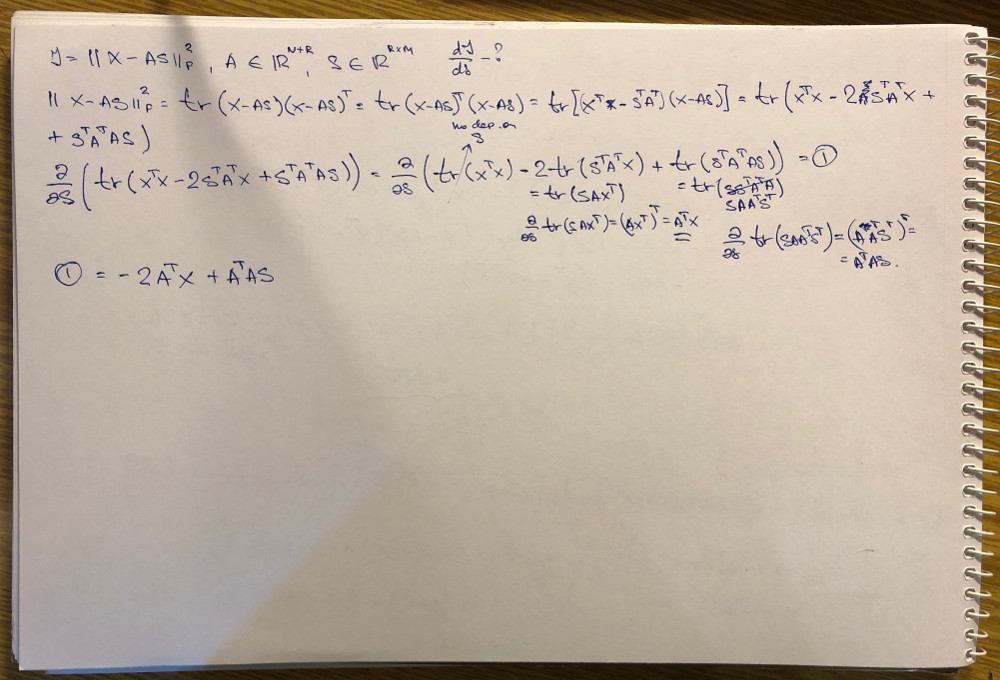 J = ||X - AS||²_F, A ∈ ℝ^{N×R}, S ∈ ℝ^{R×M} dJ/dS - ?
||X-AS||²_F = tr(X-AS)(X-AS)ᵀ = tr(X-AS)ᵀ(X-AS) = tr[(Xᵀ - SᵀAᵀ)(X-AS)] = tr(XᵀX - 2SᵀAᵀX +
+ SᵀAᵀAS)
no dep. on S
∂/∂S (tr(XᵀX - 2SᵀAᵀX + SᵀAᵀAS)) = ∂/∂S (tr(XᵀX) - 2 tr(SᵀAᵀX) + tr(SᵀAᵀAS)) = ①
= tr(SAXᵀ) = tr(SSᵀAᵀA)
SAAᵀSᵀ
∂/∂S tr(SAXᵀ) = (AXᵀ)ᵀ = AᵀX ∂/∂S tr(SAAᵀSᵀ) = (AᵀASᵀ)ᵀ =
= AᵀAS.
① = - 2AᵀX + AᵀAS